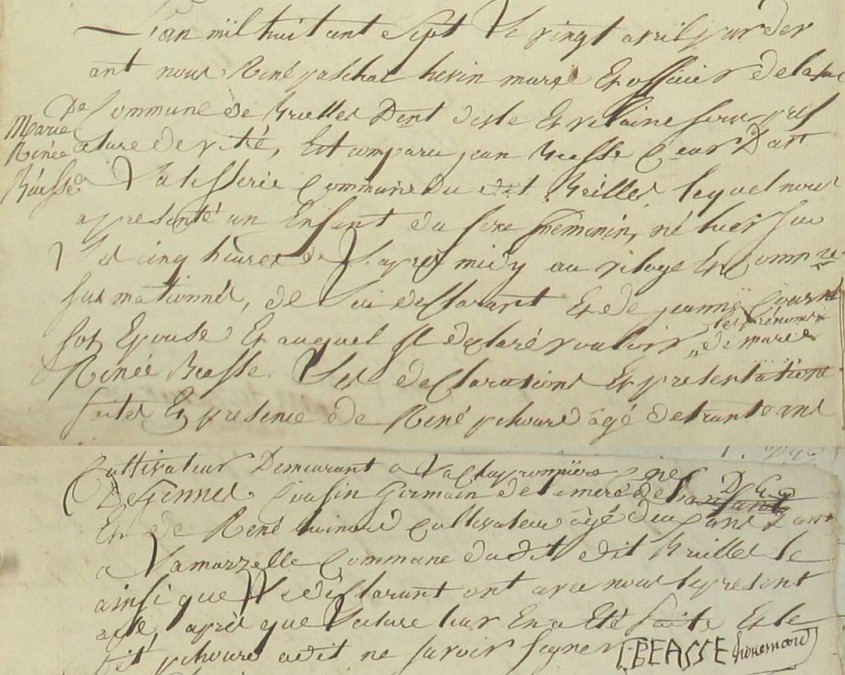 L'an mil huit cent Sept Le vingt avril par der
ant nous René paschal hevin maire Et officier de la
Commune de Brielles Dept d'isle Et vilaine Sous pref
Marie
Renée
Béasse
ecture de vitré, Est comparu jean Beasse Demt
a La Tisserie Commune du dit Brielles lequel nous
a presenté un Enfant du sexe femenin, né hier Sur
Les cinq heures de L'apres midy au vilage Et Commne
sus mationné, de Lui declarant Et de jeanne
son Epouse Et auquel il declaré vouloir les prénoms de marie
Renée Beasse. Les declarations Et presentations
faites En presence de René age de trante ans
Cultivateur Demeurant a
De Gennes Cousin Germain de la mere de L'anfant
Et de René Cultivateur agé de ans Demt
a La marzelle Commune du dit dit Brielles le
ainsi que le declarant ont avec nous le present
acte, apres que Lecture leur En a Eté faite Et le
dit a dit ne savoir signer I BEASSE